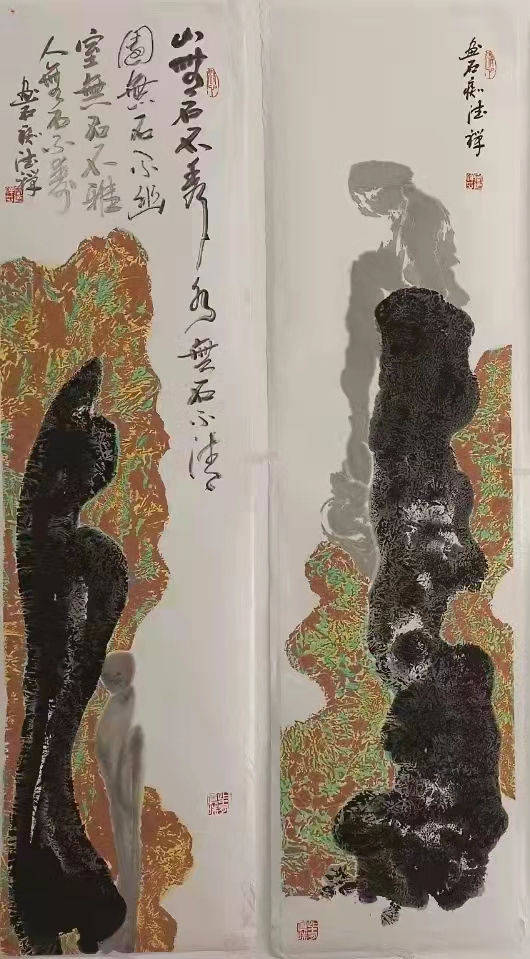 盘石
山無石不秀水無石不清
園無石不幽
室無石不雅
人無石不壽
盘石